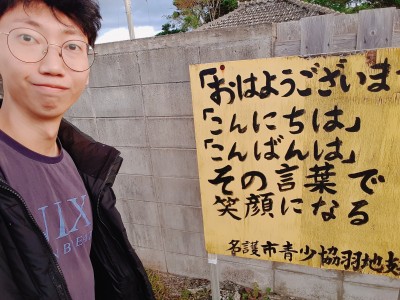 「おはようございます
「こんにちは」
「こんばんは」
その言葉で
笑顔になる
名護市青少協羽地支